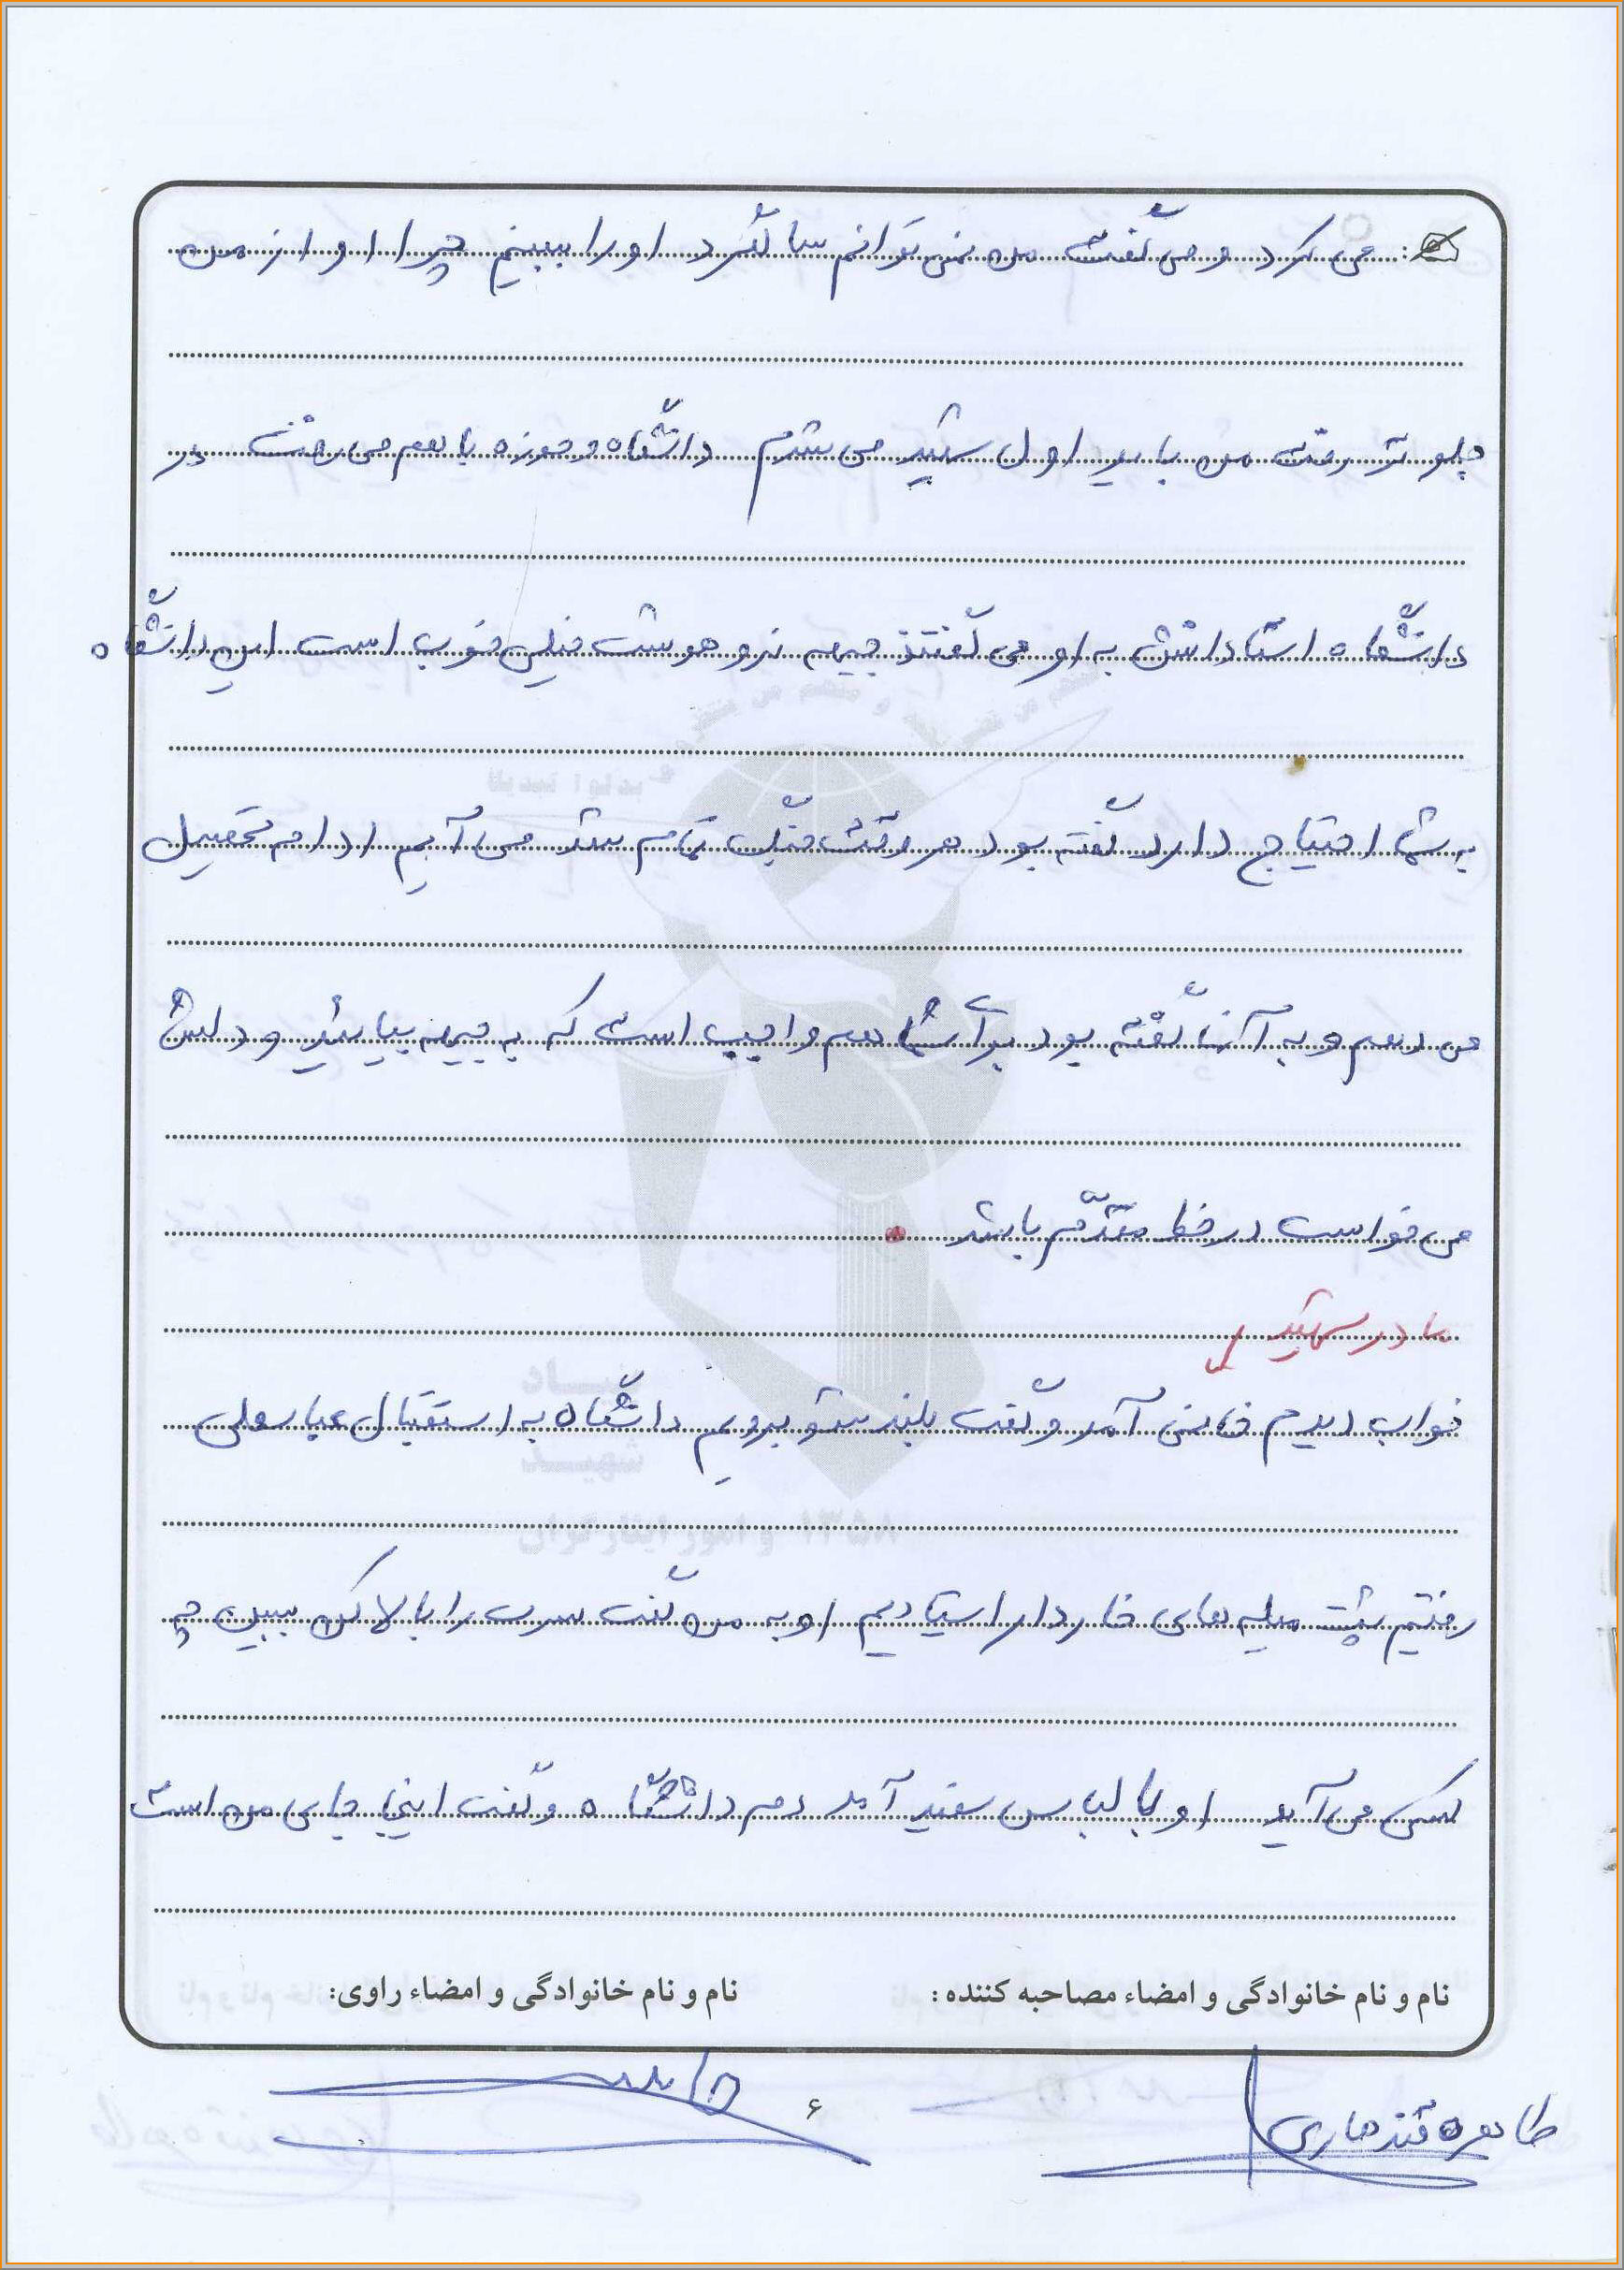 می کرد و می گفت من نمی توانم سالگرد او را ببینم چرا او از من
جلوتر رفت من باید اول شهید می شدم دانشگاه و حوزه با هم می رفت در
دانشگاه استادانش به او می گفتند جبهه نرو هوشت خیلی خوب است این دانشگاه
به شما احتیاج دارد گفته بود هر وقت جنگ تمام شد می آیم ادامه تحصیل
می دهم و به آنها گفته بود برای شما هم واجب است که به جبهه بیایید و دلش
می خواست در خط مقدم باشد
مادر شهید
خواب دیدم خانمی آمد و گفت بلند شو برویم دانشگاه به استقبال عباسعلی
رفتیم پشت میله های خاردار ایستادیم او به من گفت سرت را بالا کن ببین چه
کسی می آید او با لباس سفید آمد دم دانشگاه و گفت اینجا جای من است
نام و نام خانوادگی و امضاء مصاحبه کننده:
نام و نام خانوادگی و امضاء راوی:
طاهره قندهاری
۶
بنیاد
شهید
۱۳۵۸ و امور ایثارگران